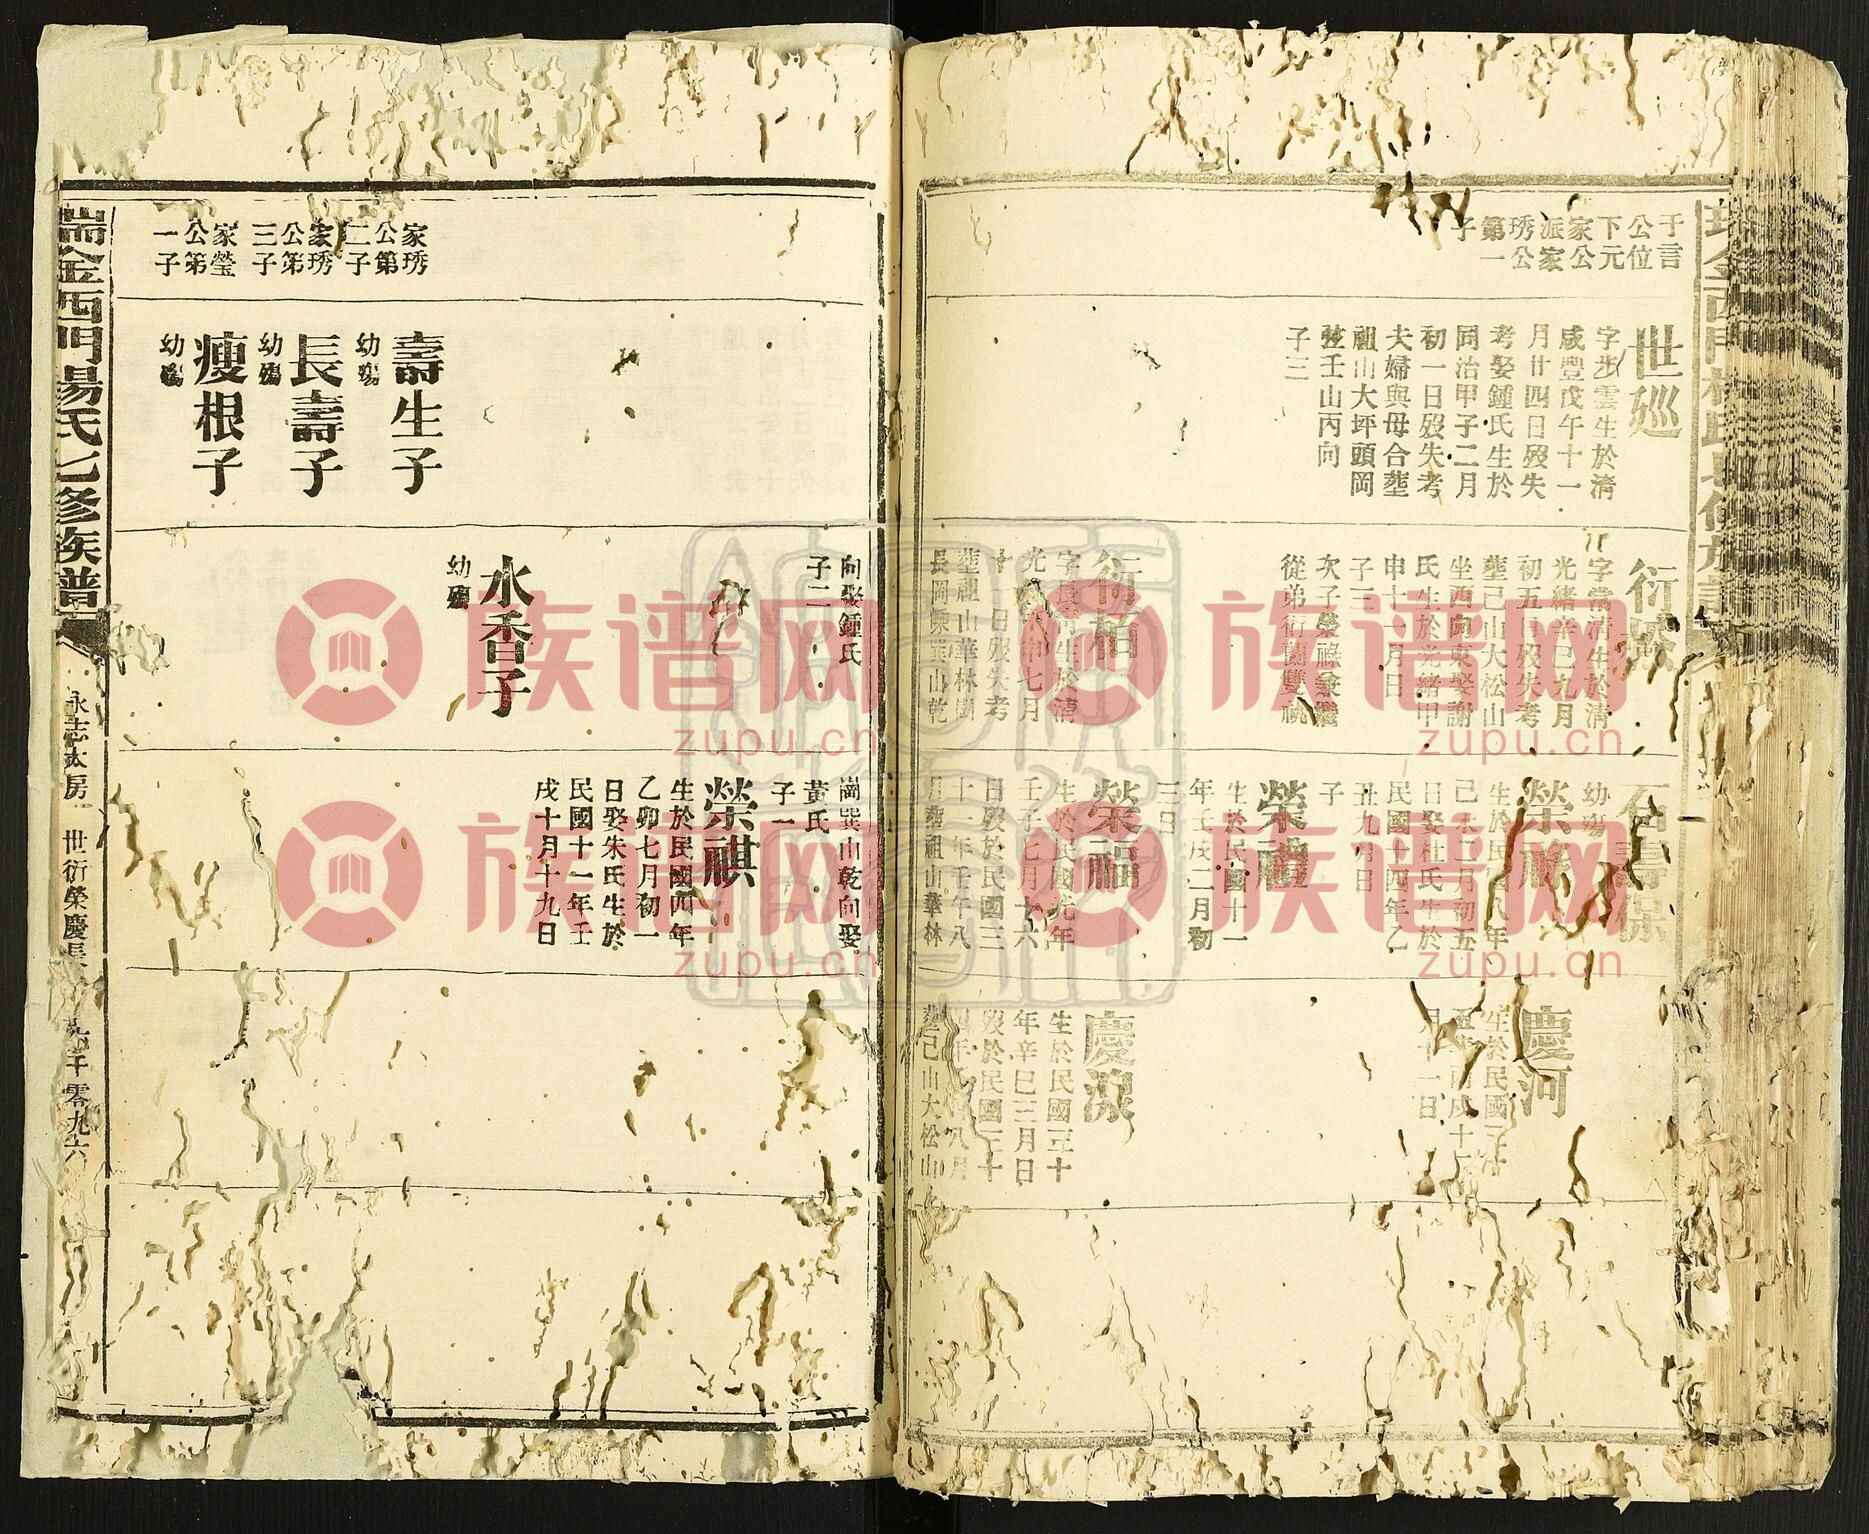 于言
公位
下元
家公
派家
琇公
第一
子
世廵
字步雲生於清
咸豐戊午十一
月廿四日歿失
考娶鍾氏生於
同治甲子二月
初一日歿失考
夫婦與母合塟
祖山大坪頭岡
塟壬山丙向
子三
字常清生於清
光緒辛巳九月
初五日歿失考
塟己山大松山
坐西向東娶謝
氏生於光緒甲
申十一月日
子三
次子榮祿兼繼
從弟衍蘭雙祧
衍柏
光緒
七月
十一日歿失考
塟祖山華林岡
長岡㟁巽山乾
石壽保
幼殤
榮祿
生於民國八年
己未二月初五
日娶杜氏生於
民國十四年乙
丑九月日
子
榮禮
生於民國十一
年壬戌二月初
三日
榮福
生於民國元年
壬子七月十六
日歿於民國三
十一年壬午八
月塟祖山華林
慶河
生於民國三十
五年丙戌十二
月十一日
慶源
生於民國三十
年辛巳三月日
歿於民國三十
四年八月
塟己山大松山
家琇
公第
二子
家琇
公第
三子
家瑩
公第
一子
壽生子
幼殤
長壽子
幼殤
瘦根子
幼殤
向娶鍾氏
子二
水香子
幼殤
崗巽山乾向娶
黃氏
子一
榮祺
生於民國四年
乙卯七月初一
日娶朱氏生於
民國十一年壬
戌十月十九日
瑞金西門楊氏七修族譜
永志太房
世衍榮慶長
千零九六
族谱网
zupu.cn
族谱网
zupu.cn
族谱网
zupu.cn
族谱网
zupu.cn